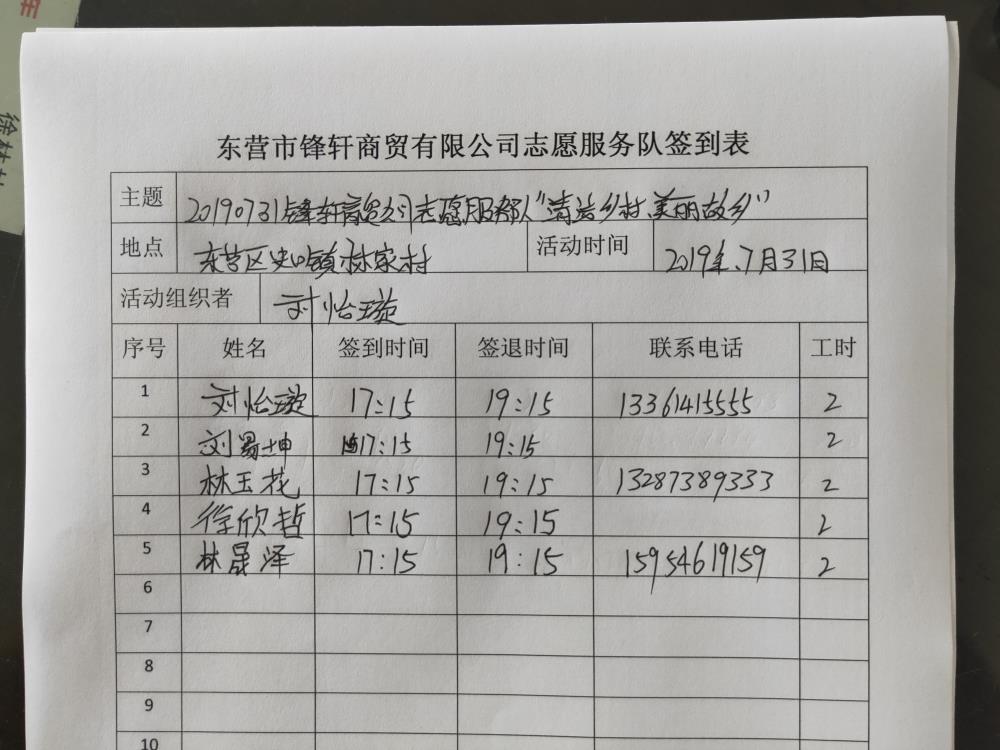 东营市锋轩商贸有限公司志愿服务队签到表
主题 20190731锋轩商贸公司志愿服务队“清洁乡村,美丽故乡”
地点 东营区史口镇林家村 活动时间 2019年7月31日
活动组织者 刘怡璇
序号 姓名 签到时间 签退时间 联系电话 工时
1 刘怡璇 17:15 19:15 13361415555 2
2 刘易坤 17:15 19:15 2
3 林玉花 17:15 19:15 13287389333 2
4 徐欣哲 17:15 19:15 2
5 林晟泽 17:15 19:15 15954619159 2
6
7
8
9
10